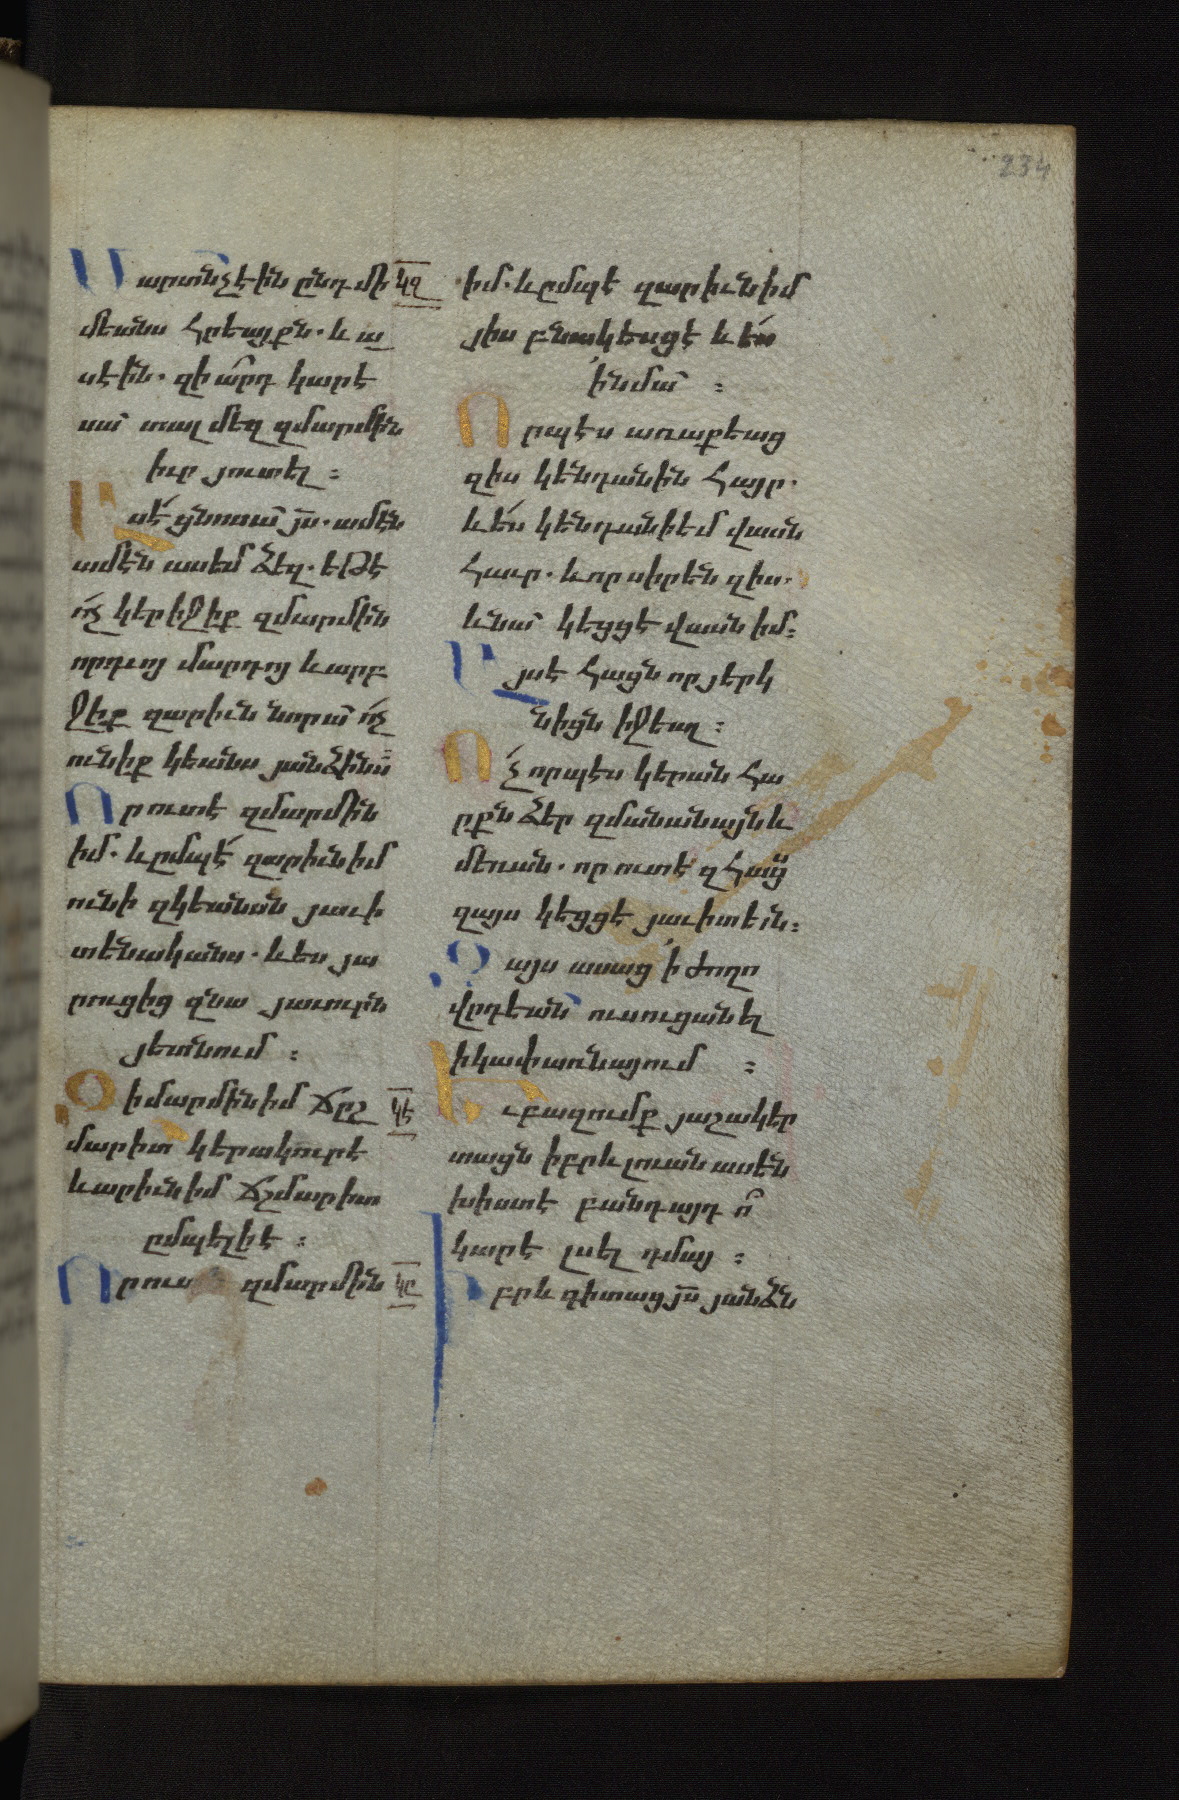 234
Մարտնչէին ընդ մի
մեանս հրեայքն. և ա
սէին. զի՞արդ կարէ
սա՛ տալ մեզ զմարմին
իւր յուտել :
Ասէ՛ ցնոսա՛ յս. ամէն
ամէն ասեմ ձեզ. եթէ
ո՛չ կերիջիք զմարմին
որդւոյ մարդոյ և արբ
ջիք զարիւն նորա՛ ո՛չ
ունիք կեանս յանձինս
Որ ուտէ զմարմին
իմ. և ըմպէ՛ զարիւն իմ
ունի զկեանսն յաւի
տենականս. և ես յա
րուցից զնա յաւուրն
յետնում :
Զի մարմին իմ ճըշ
մարիտ կերակուր է
և արիւն իմ ճշմարիտ
ըմպելի է :
Որ ուտ զմարմին
կզ
կէ
կը
իմ. և ըմպէ զարիւն իմ
յիս բնակեսցէ և ե՛ս
ի նմա՛ :
Որպէս առաքեաց
զիս կենդանին հայր.
և ե՛ս կենդանի եմ վասն
հաւր. և որ ուտէն զիս.
և նա՛ կեցցէ վասն իմ:
Այս է հացն որ յերկ
նիցն իջեալ :
Ո՛չ որպէս կերան հա
րքն ձեր զմանանայն և
մեռան. որ ուտէ զհաց
զայս կեցցէ յաւիտեան:
Զայս ասաց ի ժողո
վրդեանն ուսուցանել
ի կափառնայում :
Եւ բազումք յաշակեր
տացն իբրև լուան ասեն
խիստ է բանդ այդ ո՞
կարէ լսել դմայ :
Իբրև գիտաց յս յանձն